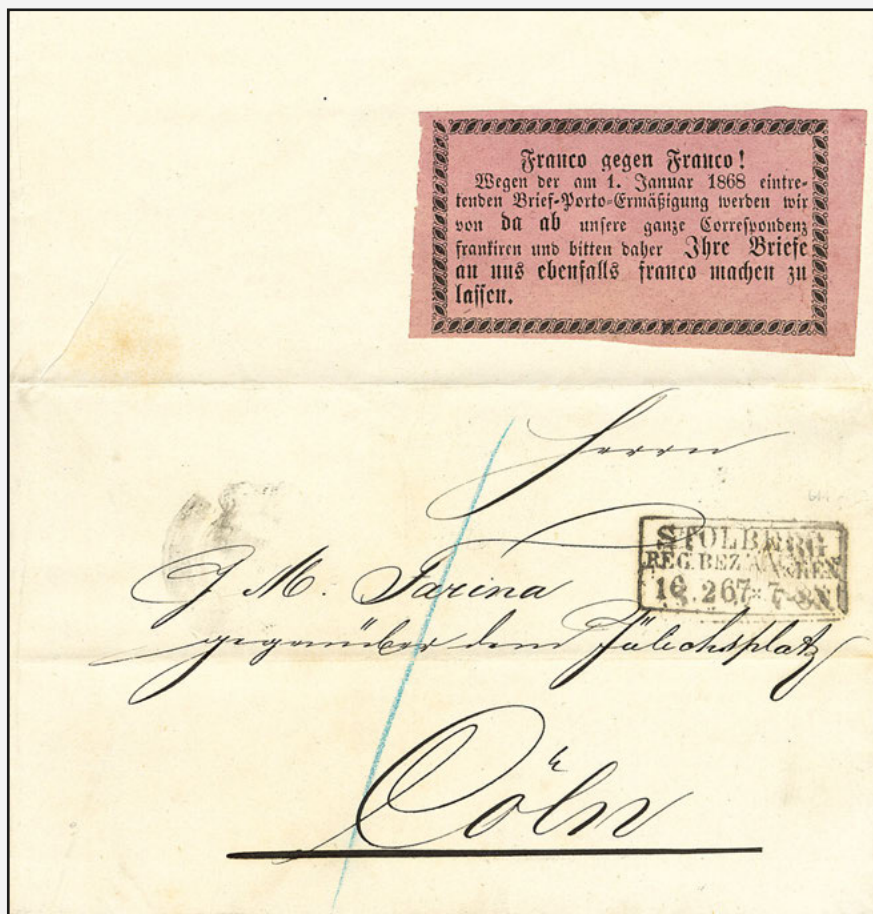 Franco gegen Franco!
Wegen der am 1. Januar 1868 eintre-
tenden Brief-Porto-Ermäßigung werden wir
von da ab unsere ganze Correspondenz
frankiren und bitten daher Ihre Briefe
an uns ebenfalls franco machen zu
lassen.
Herrn
STOLBERG
REG. BEZ. AACHEN
G M. Farina
16 . 2 67 * 7-8 N
gegenüber dem Jülichsplatz
Cöln